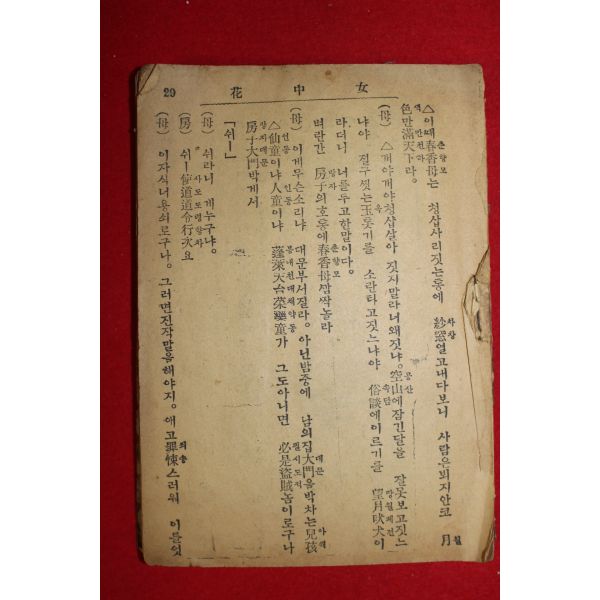 女中花
29
△이때春香母는 청삽사리짓는통에 紗窓열고내다보니 사람은뵈지안코 月
色만滿天下라。
(母) △개야개야청삽살아 짓지말라너왜짓냐。空山에잠긴달을 잘못보고짓느
냐야 절구씻는玉토끼를 소란타고짓느냐야 俗談에이르기를 望月吠犬이
라더니 너를두고한말이다。
벽란간 房子의호통에春香母깜작놀라
(母) 이게무슨소리냐 대문부서질라。아닌밤중에 남의집大門을박차는兒孩
△仙童이냐人童이냐 蓬萊天台菜藥童가 그도아니면 必是盜賊놈이로구나
房子大門박게서
「쉬ー」
(母) 쉬라니게누구냐。
(房) 쉬ー使道道令行次요
(母) 이자식너용쇠로구나。그러면진작말을해야지。애고罪悚스러워 이를엇